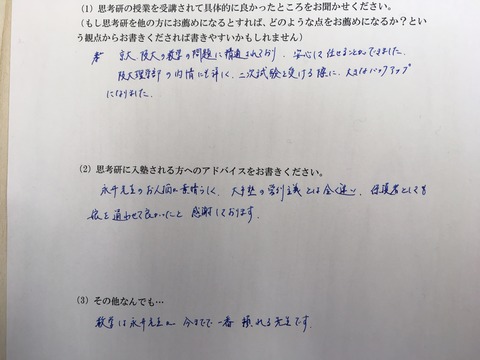 (1) 思考研の授業を受講されて具体的に良かったところをお聞かせください。
(もし思考研を他の方にお薦めになるとすれば、どのような点をお薦めになるか?とい
う観点からお書きくだされば書きやすいかもしれません)
京大 阪大の数学の問題に精通されており、安心して任せることができました。
阪大理学部の内情にも詳しく、二次試験を受ける際に、大きなバックアップ
になりました。
(2) 思考研に入塾される方へのアドバイスをお書きください。
永井先生のお人柄が素晴らしく、大手塾の営利主義とは全く違い、保護者としても
娘を通わせて良かったと 感謝しております。
(3) その他なんでも…
数学は永井先生が 今までで一番 頼れる先生です。